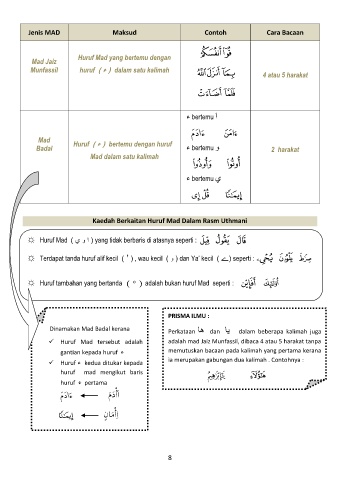 Jenis MAD Maksud Contoh Cara Bacaan
Mad Jaiz Munfassil
Huruf Mad yang bertemu dengan
huruf ( ء ) dalam satu kalimah
قُوٓاْ أَنفُسَكُمْ
بِمَآ أَنزَلَ ٱللَّهُ
فَلَمَّآ أَضَآءَتْ
4 atau 5 harakat
Mad Badal
Huruf ( ء ) bertemu dengan huruf
Mad dalam satu kalimah
ء bertemu ا
ءَادَمَ ءَامَنَ
ء bertemu و
وَأُوذُواْ أُوتُواْ
ء bertemu ي
إِيمَٰنَنَا
2 harakat
Kaedah Berkaitan Huruf Mad Dalam Rasm Uthmani
Huruf Mad ( ا و ي ) yang tidak berbaris di atasnya seperti : قَالَ يَقُولُ قِيلَ
Terdapat tanda huruf alif kecil ( ' ) , wau kecil ( و ) dan Ya’ kecil ( ے ) seperti :
Huruf tambahan yang bertanda ( ° ) adalah bukan huruf Mad seperti : أُوْلَٰٓئِكَ أَفَإِيْن
Dinamakan Mad Badal kerana
✓ Huruf Mad tersebut adalah
gantian kepada huruf ء
✓ Huruf ء kedua ditukar kepada
huruf mad mengikut baris
huruf ء pertama
ءَادَمَ ← أَأْدَمَ
إِيمَٰنَنَا ←
PRISMA ILMU :
Perkataan ها dan يا dalam beberapa kalimah juga
adalah mad Jaiz Munfassil, dibaca 4 atau 5 harakat tanpa
memutuskan bacaan pada kalimah yang pertama kerana
ia merupakan gabungan dua kalimah . Contohnya :
هَٰٓؤُلَآءِ يَٰٓإِبْرَٰهِيمُ
8